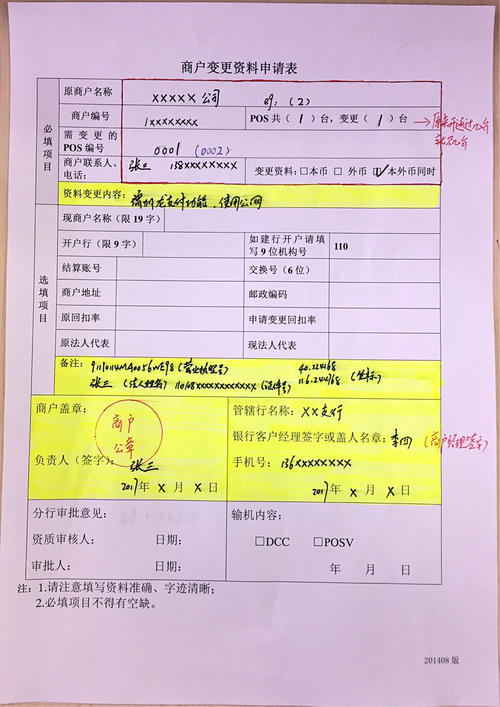 商户变更资料申请表
必填项目
原商户名称 XXXXX公司 eg：（2）
商户编号 1XXXXXXXX POS共（1）台，变更（1）台
需变更的POS编号 0001（0002）
商户联系人、电话： 张三 138XXXXXXXX 变更资料：□本币 □外币 ☑本外币同时
资料变更内容：增加龙支付功能，使用公网
选填项目
现商户名称（限19字）
开户行（限9字） 如建行开户请填写9位机构号 110
结算账号 交换号（6位）
商户地址 邮政编码
原回扣率 申请变更回扣率
原法人代表 现法人代表
备注： 91110114MA0056WE98（营业执照号） 40.224168
张三（法人姓名）110108XXXXXXXXXXXX（证件号） 116.244168（坐标）
商户盖章： 管辖行名称：XX支行
商户公章
银行客户经理签字或盖人名章：李四（商户经理签字）
负责人（签字）：张三 手机号：136XXXXXXXX
2017年X月X日 2017年X月X日
分行审批意见： 输机内容：
资质审核人： 日期： □DCC □POSV
审批人： 日期： 年 月 日
注：1.请注意填写资料准确、字迹清晰；
2.必填项目不得有空缺。
201408 版